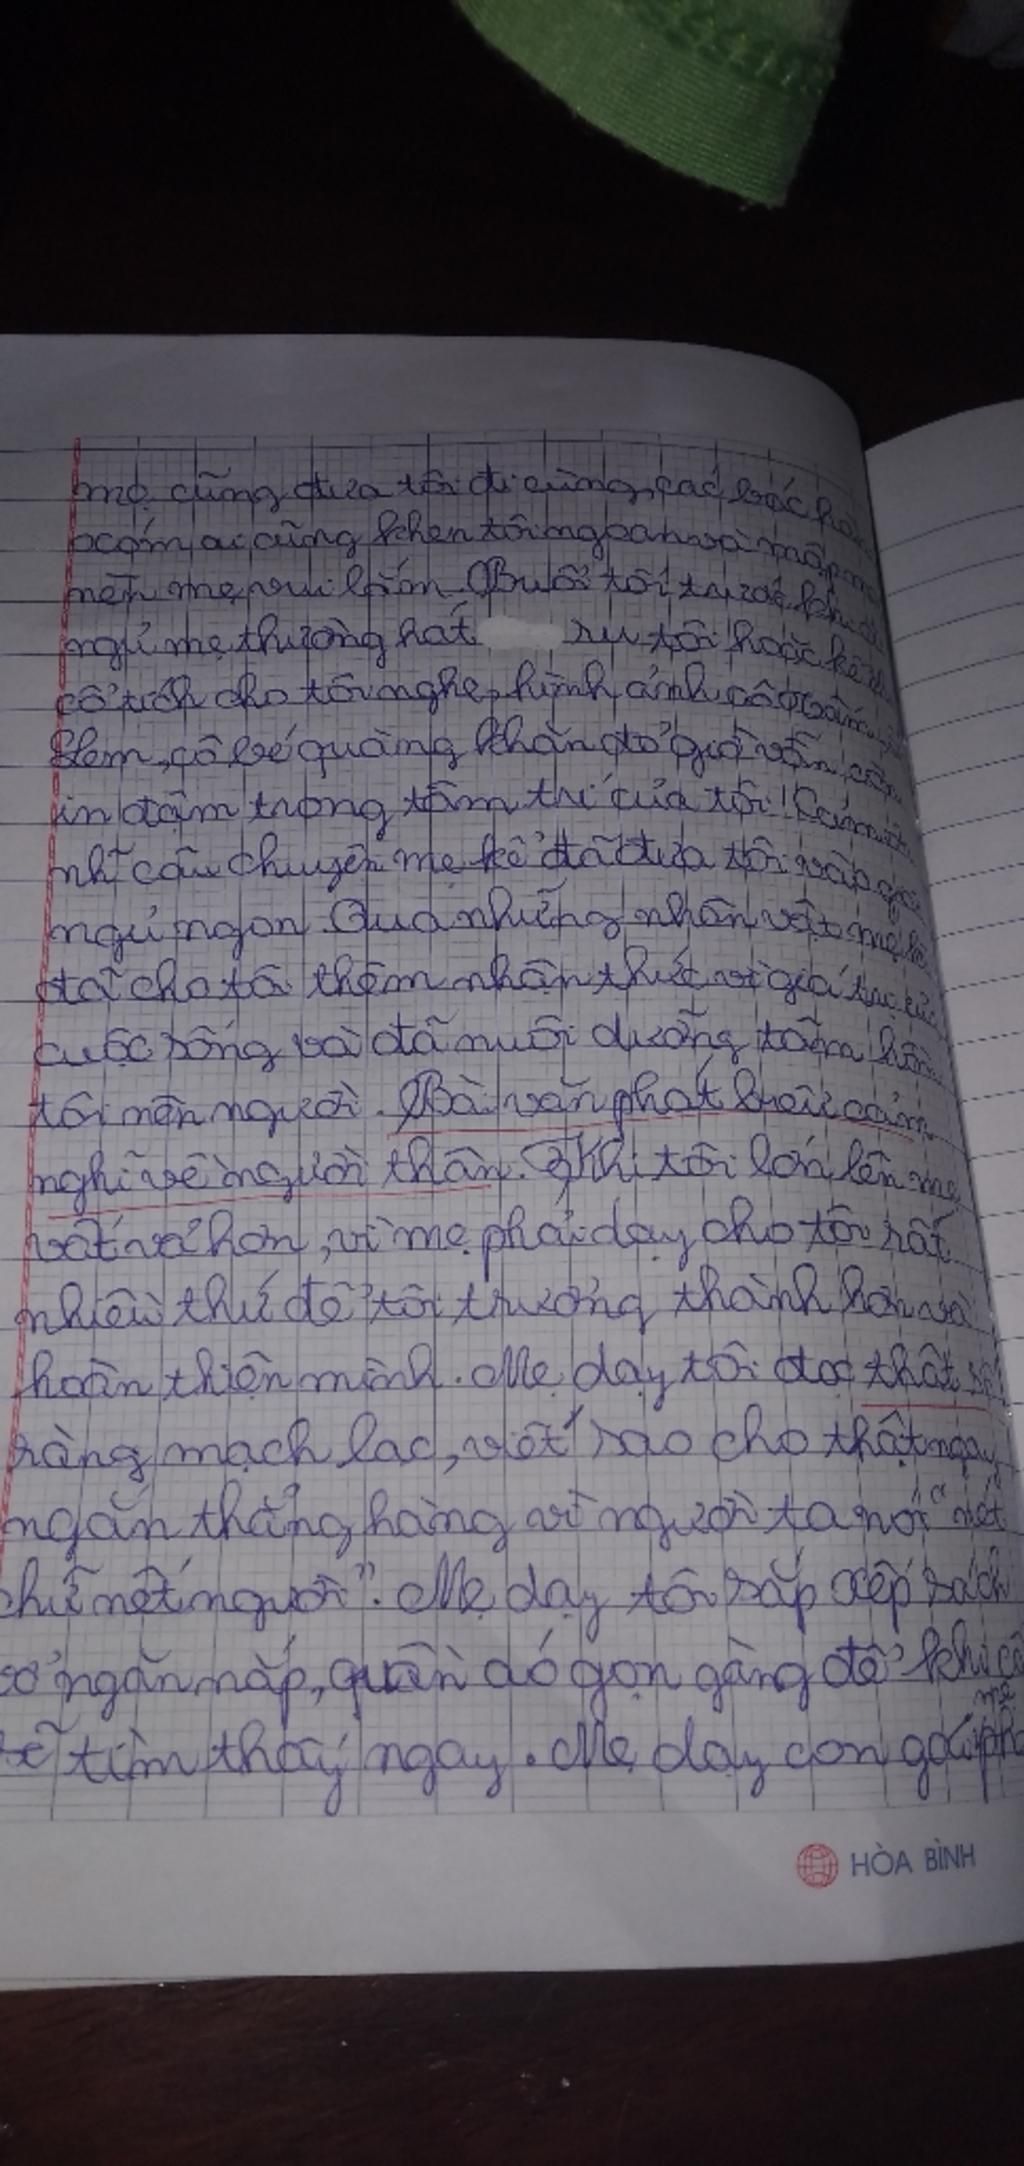 mẹ cũng đưa tôi đi cùng, các bác hàng
xóm ai cũng khen tôi ngoan và mập mạp
nên mẹ vui lắm. Buổi tối trước khi đi
ngủ mẹ thường hát ru tôi hoặc kể
cổ tích cho tôi nghe, hình ảnh cô Tấm,
Lem, cô bé quàng khăn đỏ giờ vẫn còn
in đậm trong tâm trí của tôi!
nhĩ câu chuyện mẹ kể đã đưa tôi vào giấc
ngủ ngon. Qua những nhân vật mẹ kể
đã cho tôi thêm nhận thức vì giá trị của
cuộc sống và đã nuôi dưỡng tâm hồn
tôi nên người. Bài văn phát biểu cảm
nghĩ về người thân. Khi tôi lớn lên mẹ
vất vả hơn, vì mẹ phải dạy cho tôi rất
nhiều thứ để tôi trưởng thành hơn và
hoàn thiện mình. Mẹ dạy tôi đọc thật rõ
ràng mạch lạc, viết sao cho thật ngay
ngắn thẳng hàng vì người ta nói "nét
chữ nết người". Mẹ dạy tôi sắp xếp sách
vở ngăn nắp, quần áo gọn gàng để khi cần
sẽ tìm thấy ngay. Mẹ dạy con gái
HÒA BÌNH